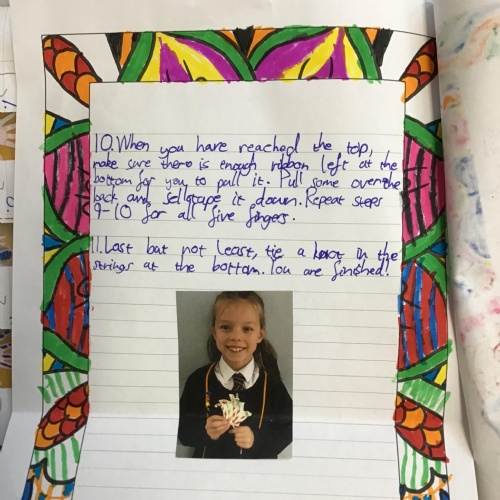 10. When you have reached the top,
make sure there is enough ribbon left at the
bottom for you to pull it. Pull some over the
back and sellotape it down. Repeat steps
9-10 for all five fingers.
11. Last but not least, tie a knot in the
strings at the bottom. You are finished!